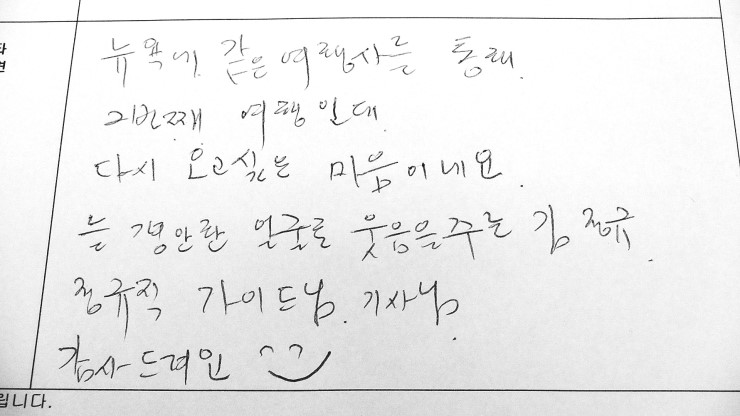 타
견
뉴욕에 같은 여행사를 통해.
2번째 여행인데.
다시 오고싶은 마음이네요.
늘 편안한 얼굴로 웃음을주는 김 정규.
정규직 가이드님. 기사님.
감사드려요
립니다.